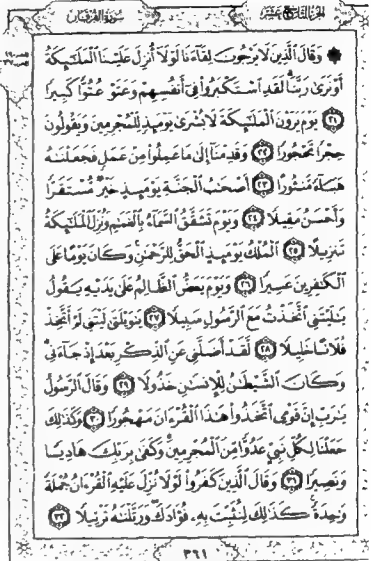 الجزء التاسع عشر سورة الفرقان
۞ وَقَالَ ٱلَّذِينَ لَا يَرْجُونَ لِقَآءَنَا لَوْلَآ أُنزِلَ عَلَيْنَا ٱلْمَلَٰٓئِكَةُ
أَوْ نَرَىٰ رَبَّنَا ۗ لَقَدِ ٱسْتَكْبَرُوا۟ فِىٓ أَنفُسِهِمْ وَعَتَوْ عُتُوًّا كَبِيرًا
٢١ يَوْمَ يَرَوْنَ ٱلْمَلَٰٓئِكَةَ لَا بُشْرَىٰ يَوْمَئِذٍ لِّلْمُجْرِمِينَ وَيَقُولُونَ
حِجْرًا مَّحْجُورًا ٢٢ وَقَدِمْنَآ إِلَىٰ مَا عَمِلُوا۟ مِنْ عَمَلٍ فَجَعَلْنَٰهُ
هَبَآءً مَّنثُورًا ٢٣ أَصْحَٰبُ ٱلْجَنَّةِ يَوْمَئِذٍ خَيْرٌ مُّسْتَقَرًّا
وَأَحْسَنُ مَقِيلًا ٢٤ وَيَوْمَ تَشَقَّقُ ٱلسَّمَآءُ بِٱلْغَمَٰمِ وَنُزِّلَ ٱلْمَلَٰٓئِكَةُ
تَنزِيلًا ٢٥ ٱلْمُلْكُ يَوْمَئِذٍ ٱلْحَقُّ لِلرَّحْمَٰنِ ۚ وَكَانَ يَوْمًا عَلَى
ٱلْكَٰفِرِينَ عَسِيرًا ٢٦ وَيَوْمَ يَعَضُّ ٱلظَّالِمُ عَلَىٰ يَدَيْهِ يَقُولُ
يَٰلَيْتَنِى ٱتَّخَذْتُ مَعَ ٱلرَّسُولِ سَبِيلًا ٢٧ يَٰوَيْلَتَىٰ لَيْتَنِى لَمْ أَتَّخِذْ
فُلَانًا خَلِيلًا ٢٨ لَّقَدْ أَضَلَّنِى عَنِ ٱلذِّكْرِ بَعْدَ إِذْ جَآءَنِى ۗ
وَكَانَ ٱلشَّيْطَٰنُ لِلْإِنسَٰنِ خَذُولًا ٢٩ وَقَالَ ٱلرَّسُولُ
يَٰرَبِّ إِنَّ قَوْمِى ٱتَّخَذُوا۟ هَٰذَا ٱلْقُرْءَانَ مَهْجُورًا ٣٠ وَكَذَٰلِكَ
جَعَلْنَا لِكُلِّ نَبِىٍّ عَدُوًّا مِّنَ ٱلْمُجْرِمِينَ ۗ وَكَفَىٰ بِرَبِّكَ هَادِيًا
وَنَصِيرًا ٣١ وَقَالَ ٱلَّذِينَ كَفَرُوا۟ لَوْلَا نُزِّلَ عَلَيْهِ ٱلْقُرْءَانُ جُمْلَةً
وَٰحِدَةً ۚ كَذَٰلِكَ لِنُثَبِّتَ بِهِۦ فُؤَادَكَ ۖ وَرَتَّلْنَٰهُ تَرْتِيلًا ٣٢
٣٦١